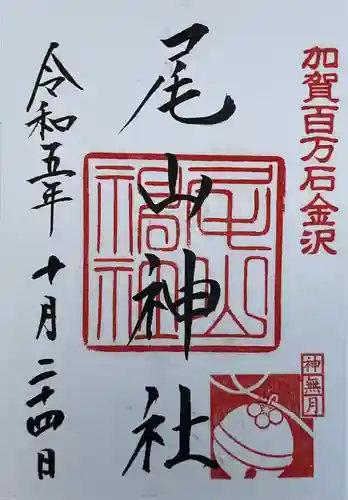 加賀百万石金沢
尾山神社
尾山神社
令和五年
十月二十四日
神無月